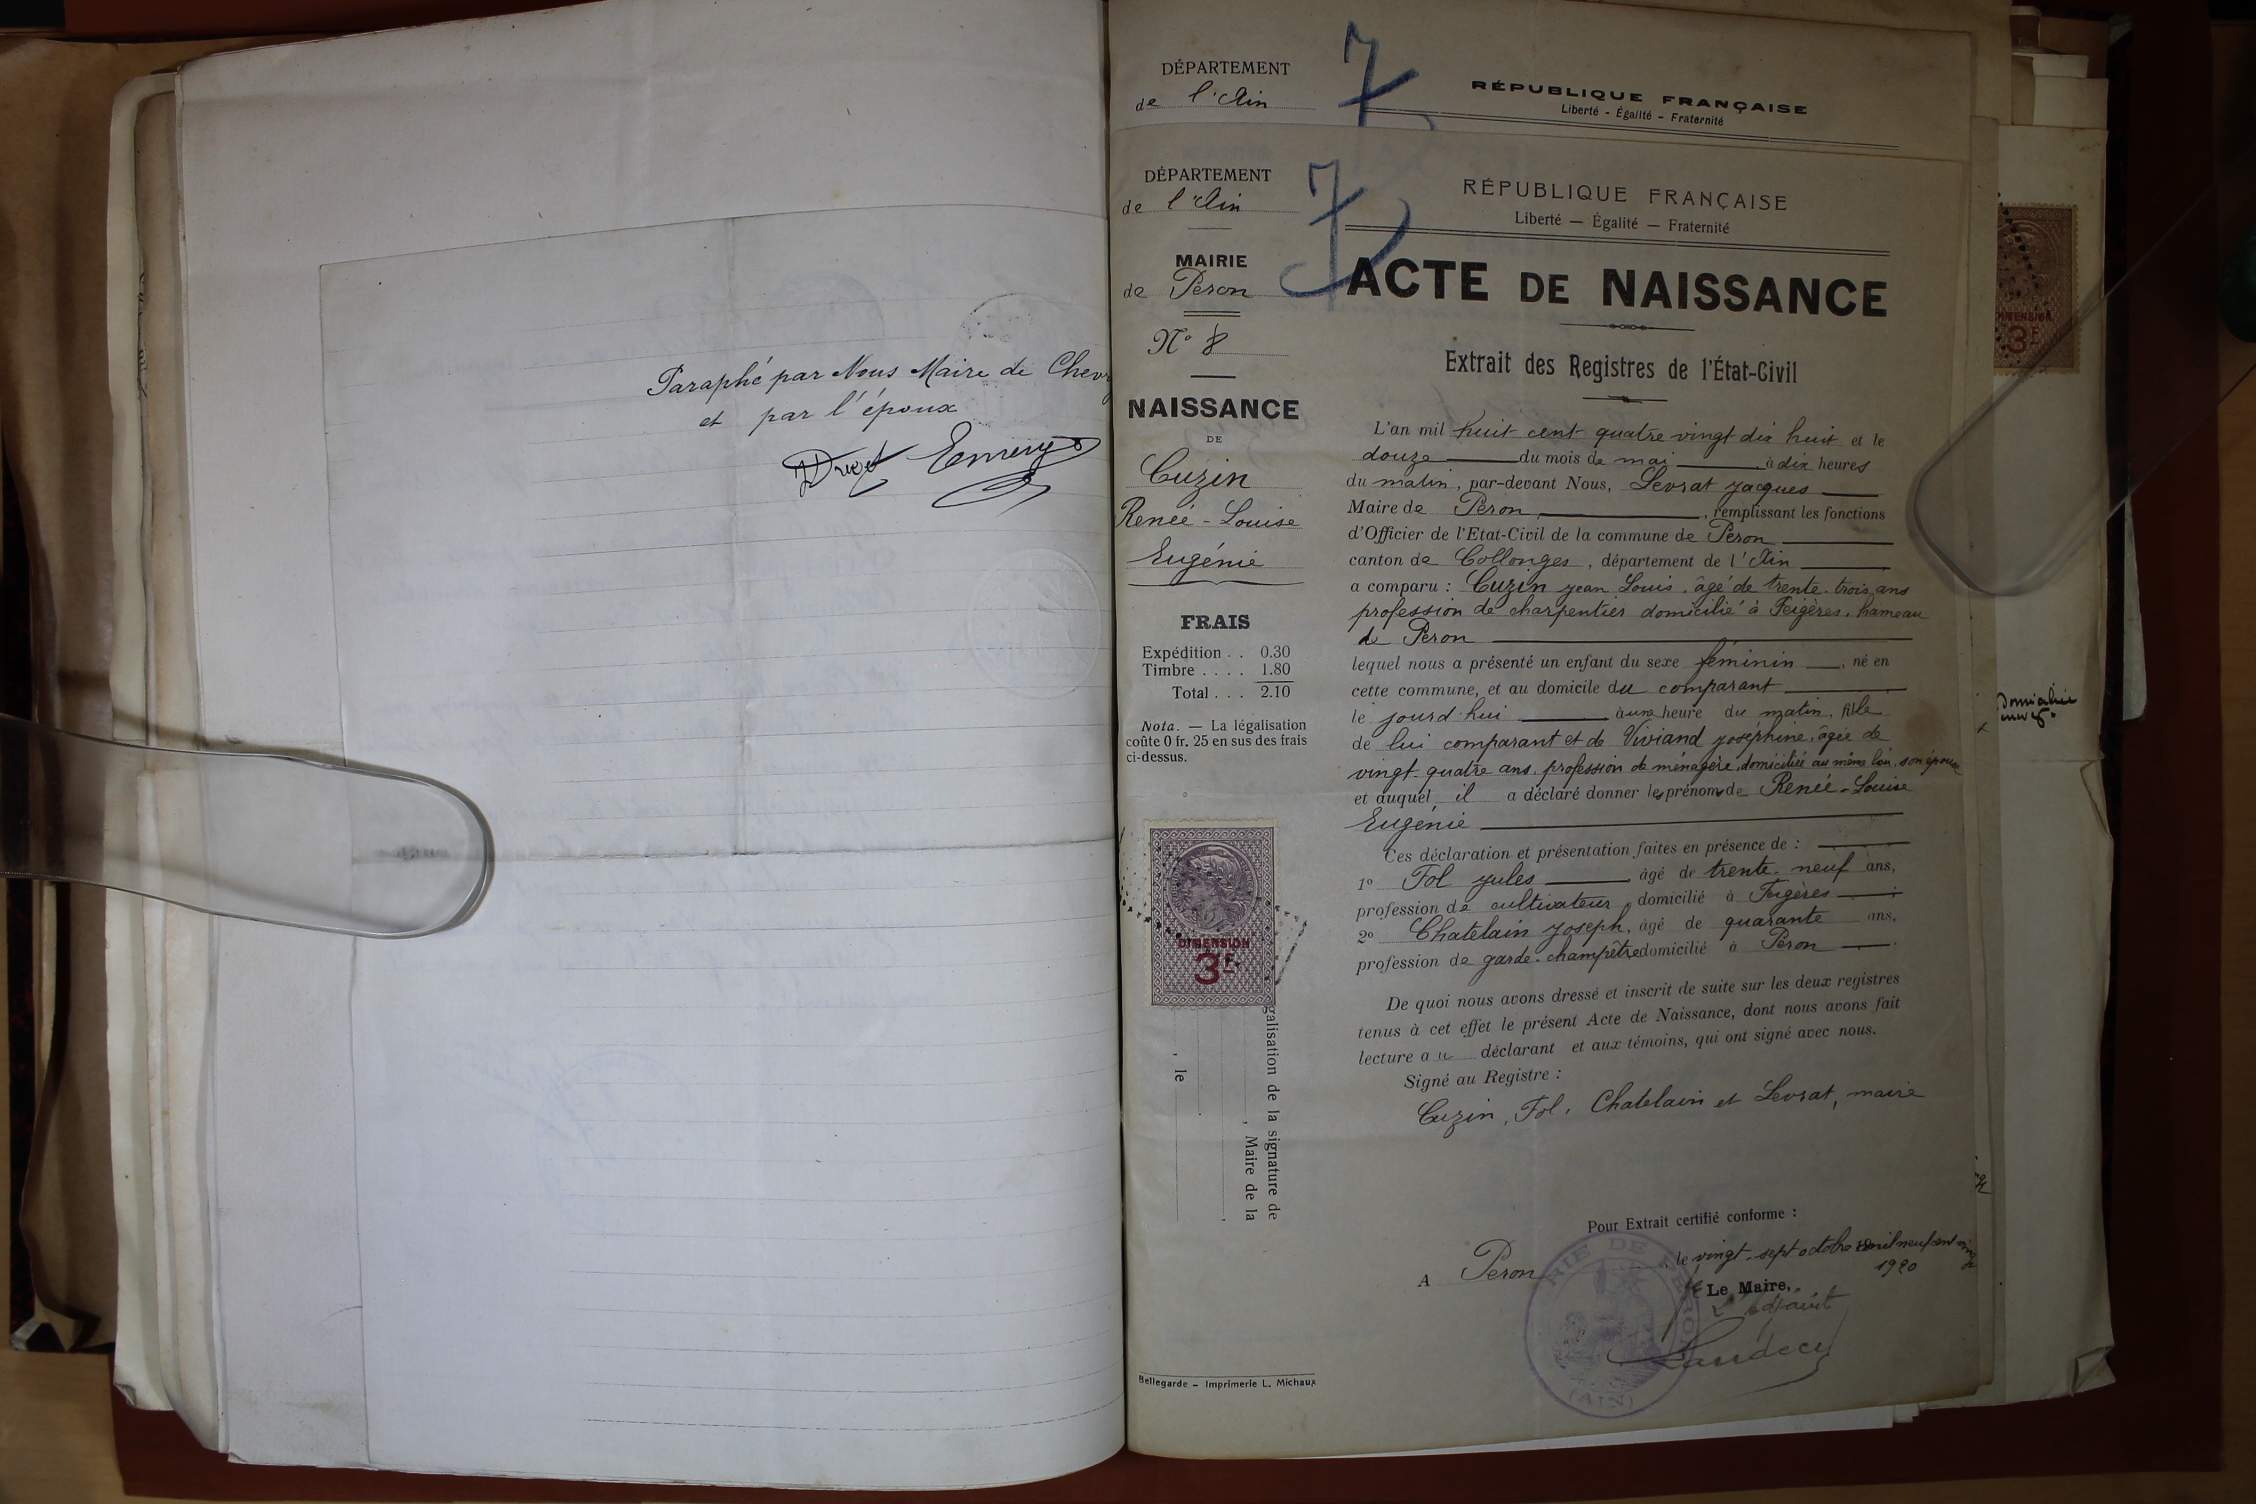 Paraphé par Nous Maire de Chevry
et par l'époux
Druet Emery
DÉPARTEMENT
de l'Ain
7
RÉPUBLIQUE FRANÇAISE
Liberté - Égalité - Fraternité
DÉPARTEMENT
de l'Ain
MAIRIE
de Péron
N° 8
NAISSANCE
DE
Cuzin
Renée - Louise
Eugénie
FRAIS
Expédition . . 0.30
Timbre . . . . 1.80
Total . . . 2.10
Nota. — La légalisation
coûte 0 fr. 25 en sus des frais
ci-dessus.
DIMENSION
3F.
galisation de la signature de
, Maire de la
, le
Bellegarde - Imprimerie L. Michaux
7
RÉPUBLIQUE FRANÇAISE
Liberté — Égalité — Fraternité
ACTE DE NAISSANCE
Extrait des Registres de l'État-Civil
L'an mil huit cent quatre vingt dix huit et le
douze du mois de mai à dix heures
du matin, par-devant Nous, Levrat Jacques
Maire de Péron, remplissant les fonctions
d'Officier de l'Etat-Civil de la commune de Péron
canton de Collonges, département de l'Ain
a comparu : Cuzin Jean Louis, âgé de trente-trois ans
profession de charpentier domicilié à Feigères, hameau
de Péron
lequel nous a présenté un enfant du sexe féminin, né en
cette commune, et au domicile du comparant
le jourd'hui à une heure du matin, fille
de lui comparant et de Viviand Joséphine, agée de
vingt-quatre ans, profession de ménagère, domiciliée au même lieu, son épouse
et auquel il a déclaré donner les prénoms de Renée-Louise
Eugénie
Ces déclaration et présentation faites en présence de :
1° Fol Jules âgé de trente-neuf ans,
profession de cultivateur, domicilié à Feigères ;
2° Chatelain Joseph, âgé de quarante ans,
profession de garde-champêtre domicilié à Péron .
De quoi nous avons dressé et inscrit de suite sur les deux registres
tenus à cet effet le présent Acte de Naissance, dont nous avons fait
lecture au déclarant et aux témoins, qui ont signé avec nous.
Signé au Registre :
Cuzin, Fol, Chatelain et Levrat, maire
Pour Extrait certifié conforme :
A Péron, le vingt-sept octobre mil neuf cent vingt
1920
Le Maire,
L'adjoint
RIE DE PERON
(AIN)
DIMENSION
3F